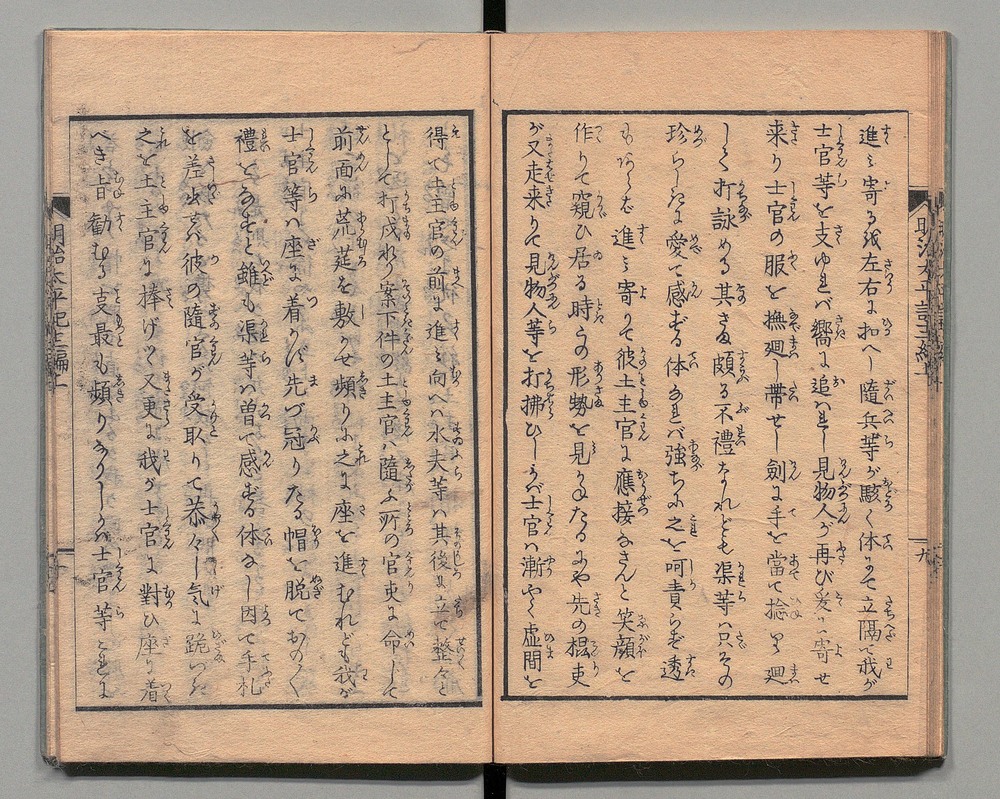 進ミ寄るを左右に扣へし隨兵等が駭く体にて立隔て我が
士官等を支ゆれバ嚮に追へれし見物人が再び爰に寄せ
来り士官の服を撫廻し帯せし劍に手を當て捻り廻
しミ打詠める其さま頗る不禮なれども渠等ハ只その
珍らしきに愛て感ずる体なれバ強ちに之を呵責らず透
もあらバ進ミ寄りて彼土主官に應接なさんと笑顔を
作りて窺ひ居る時この形勢を見かねたるにや先の棍吏
が又走来りて見物人等を打拂ひしかバ士官ハ漸やく虚間を
得て土主官の前に進ミ向へバ水夫等ハ其後に立て整々と
として打戍れり案下件の土主官ハ隨ふ所の官吏に命して
前面に荒莚を敷かせ頻りに之に座を進むれども我が
士官等ハ座に着かず先づ冠りたる帽を脱ておの〳〵
禮をなすと雖も渠等ハ曽て感ずる体なし因て手札
を差出せバ彼の隨官が受取りて恭々し気に跪いて
之を土主官に捧げつゝ又更に我が士官に對ひ座に着
べき旨勸むる叓最も頻りなりしかバ士官等これに
明治太平記三編上
九